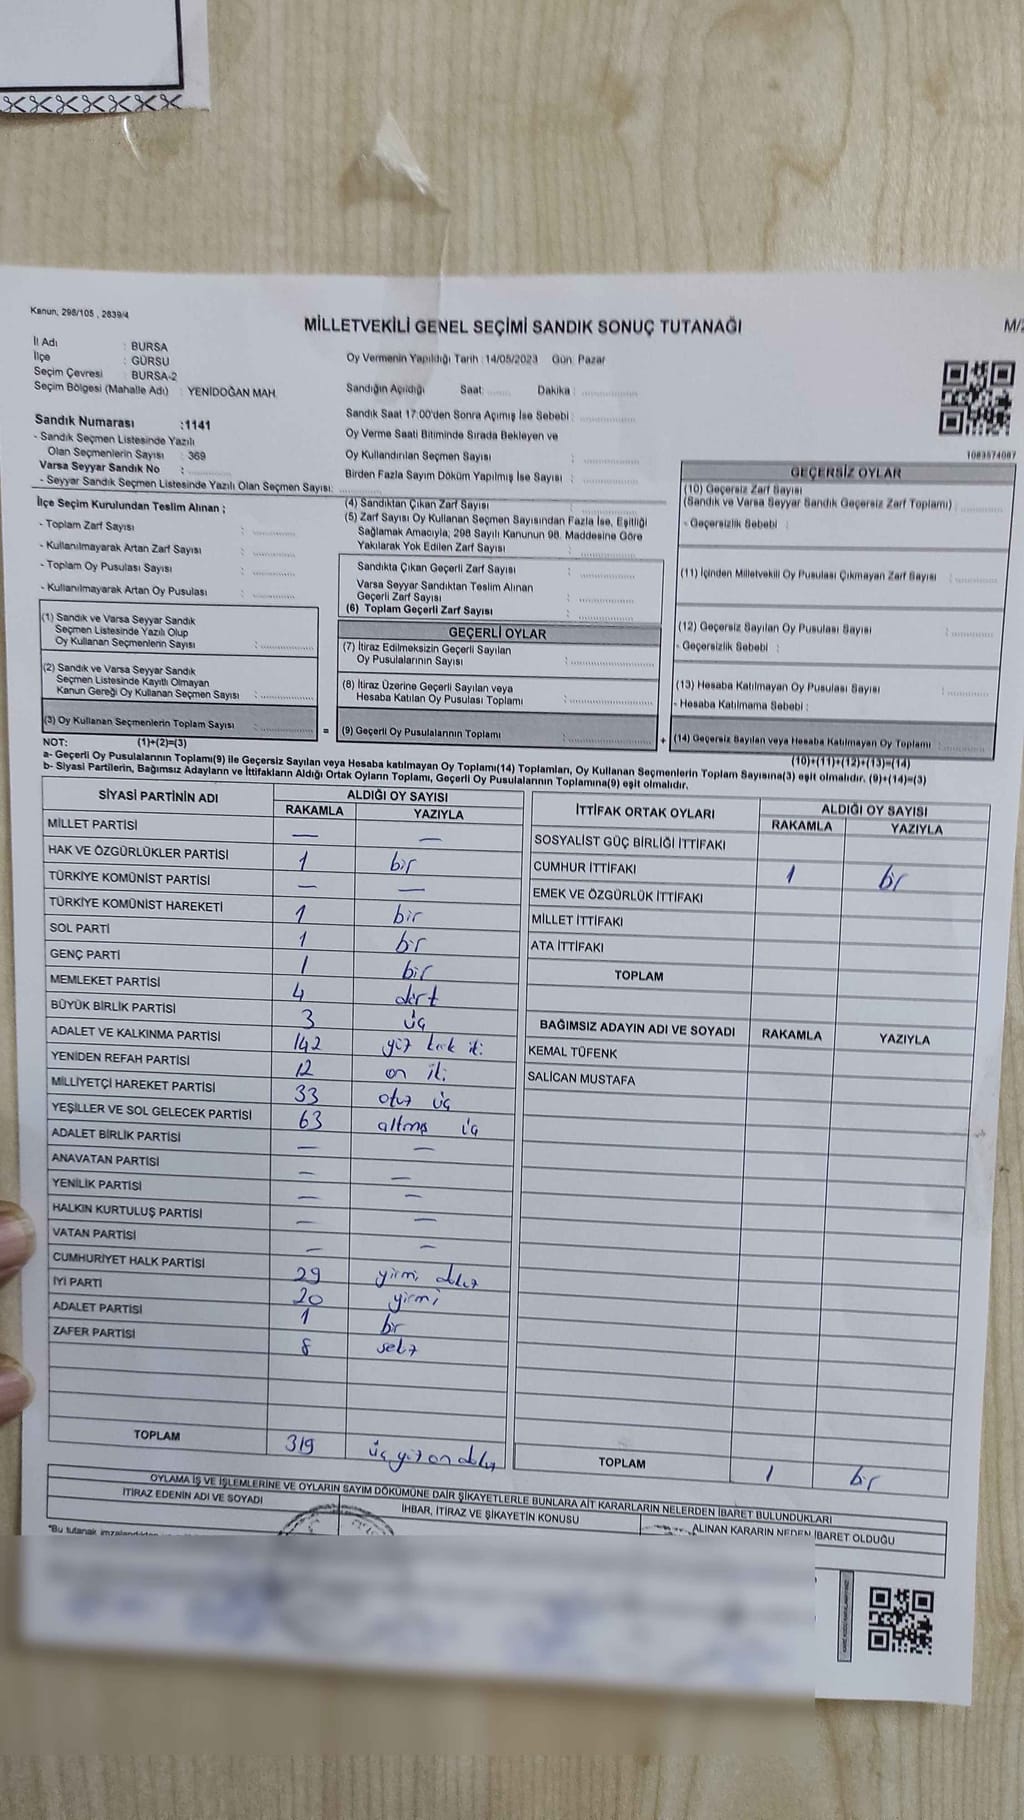 Kanun, 298/105 , 2839/4
MİLLETVEKİLİ GENEL SEÇİMİ SANDIK SONUÇ TUTANAĞI
M/2
İl Adı : BURSA
İlçe : GÜRSU
Seçim Çevresi : BURSA-2
Seçim Bölgesi (Mahalle Adı) : YENİDOĞAN MAH.
Oy Vermenin Yapıldığı Tarih : 14/05/2023 Gün: Pazar
Sandığın Açıldığı Saat: ....... Dakika : ...............
Sandık Saat 17:00'den Sonra Açılmış İse Sebebi : ...............
Oy Verme Saati Bitiminde Sırada Bekleyen ve
Oy Kullandırılan Seçmen Sayısı : ...............
Birden Fazla Sayım Döküm Yapılmış İse Sayısı : ...............
Sandık Numarası :1141
- Sandık Seçmen Listesinde Yazılı
Olan Seçmenlerin Sayısı : 369
Varsa Seyyar Sandık No :
- Seyyar Sandık Seçmen Listesinde Yazılı Olan Seçmen Sayısı: ...............
1083574087
İlçe Seçim Kurulundan Teslim Alınan ;
- Toplam Zarf Sayısı : ...............
- Kullanılmayarak Artan Zarf Sayısı : ...............
- Toplam Oy Pusulası Sayısı : ...............
- Kullanılmayarak Artan Oy Pusulası : ...............
(1) Sandık ve Varsa Seyyar Sandık
Seçmen Listesinde Yazılı Olup
Oy Kullanan Seçmenlerin Sayısı : ...............
(2) Sandık ve Varsa Seyyar Sandık
Seçmen Listesinde Kayıtlı Olmayan
Kanun Gereği Oy Kullanan Seçmen Sayısı : ...............
(3) Oy Kullanan Seçmenlerin Toplam Sayısı : ...............
(1)+(2)=(3)
(4) Sandıktan Çıkan Zarf Sayısı : ...............
(5) Zarf Sayısı Oy Kullanan Seçmen Sayısından Fazla İse, Eşitliği
Sağlamak Amacıyla; 298 Sayılı Kanunun 98. Maddesine Göre
Yakılarak Yok Edilen Zarf Sayısı : ...............
Sandıkta Çıkan Geçerli Zarf Sayısı : ...............
Varsa Seyyar Sandıktan Teslim Alınan
Geçerli Zarf Sayısı : ...............
(6) Toplam Geçerli Zarf Sayısı : ...............
GEÇERLİ OYLAR
(7) İtiraz Edilmeksizin Geçerli Sayılan
Oy Pusulalarının Sayısı : ...............
(8) İtiraz Üzerine Geçerli Sayılan veya
Hesaba Katılan Oy Pusulası Toplamı : ...............
= (9) Geçerli Oy Pusulalarının Toplamı : ...............
GEÇERSİZ OYLAR
(10) Geçersiz Zarf Sayısı
(Sandık ve Varsa Seyyar Sandık Geçersiz Zarf Toplamı) : ...............
- Geçersizlik Sebebi :
(11) İçinden Milletvekili Oy Pusulası Çıkmayan Zarf Sayısı : ...............
(12) Geçersiz Sayılan Oy Pusulası Sayısı : ...............
- Geçersizlik Sebebi :
(13) Hesaba Katılmayan Oy Pusulası Sayısı : ...............
- Hesaba Katılmama Sebebi :
+ (14) Geçersiz Sayılan veya Hesaba Katılmayan Oy Toplamı : ...............
(10)+(11)+(12)+(13)=(14)
NOT:
a- Geçerli Oy Pusulaları Toplamı(9) ile Geçersiz Sayılan veya Hesaba katılmayan Oy Toplamı(14) Toplamları, Oy Kullanan Seçmenlerin Toplam Sayısına(3) eşit olmalıdır. (9)+(14)=(3)
b- Siyasi Partilerin, Bağımsız Adayların ve İttifakların Aldığı Ortak Oyların Toplamı, Geçerli Oy Pusulalarının Toplamına(9) eşit olmalıdır.
SİYASİ PARTİNİN ADI ALDIĞI OY SAYISI
RAKAMLA YAZIYLA
MİLLET PARTİSİ — —
HAK VE ÖZGÜRLÜKLER PARTİSİ 1 bir
TÜRKİYE KOMÜNİST PARTİSİ — —
TÜRKİYE KOMÜNİST HAREKETİ 1 bir
SOL PARTİ 1 bir
GENÇ PARTİ 1 bir
MEMLEKET PARTİSİ 4 dört
BÜYÜK BİRLİK PARTİSİ 3 üç
ADALET VE KALKINMA PARTİSİ 142 yüz kırk iki
YENİDEN REFAH PARTİSİ 12 on iki
MİLLİYETÇİ HAREKET PARTİSİ 33 otuz üç
YEŞİLLER VE SOL GELECEK PARTİSİ 63 altmış üç
ADALET BİRLİK PARTİSİ — —
ANAVATAN PARTİSİ — —
YENİLİK PARTİSİ — —
HALKIN KURTULUŞ PARTİSİ — —
VATAN PARTİSİ — —
CUMHURİYET HALK PARTİSİ 29 yirmi dokuz
İYİ PARTİ 20 yirmi
ADALET PARTİSİ 1 bir
ZAFER PARTİSİ 8 sekiz
TOPLAM 319 üç yüz on dokuz
İTTİFAK ORTAK OYLARI ALDIĞI OY SAYISI
RAKAMLA YAZIYLA
SOSYALİST GÜÇ BİRLİĞİ İTTİFAKI
CUMHUR İTTİFAKI 1 bir
EMEK VE ÖZGÜRLÜK İTTİFAKI
MİLLET İTTİFAKI
ATA İTTİFAKI
TOPLAM
BAĞIMSIZ ADAYIN ADI VE SOYADI RAKAMLA YAZIYLA
KEMAL TÜFENK
SALİCAN MUSTAFA
TOPLAM 1 bir
OYLAMA İŞ VE İŞLEMLERİNE VE OYLARIN SAYIM DÖKÜMÜNE DAİR ŞİKAYETLERLE BUNLARA AİT KARARLARIN NELERDEN İBARET BULUNDUKLARI
İTİRAZ EDENİN ADI VE SOYADI
İHBAR, İTİRAZ VE ŞİKAYETİN KONUSU
ALINAN KARARIN NEDEN İBARET OLDUĞU
"Bu tutanak imzalandıktan